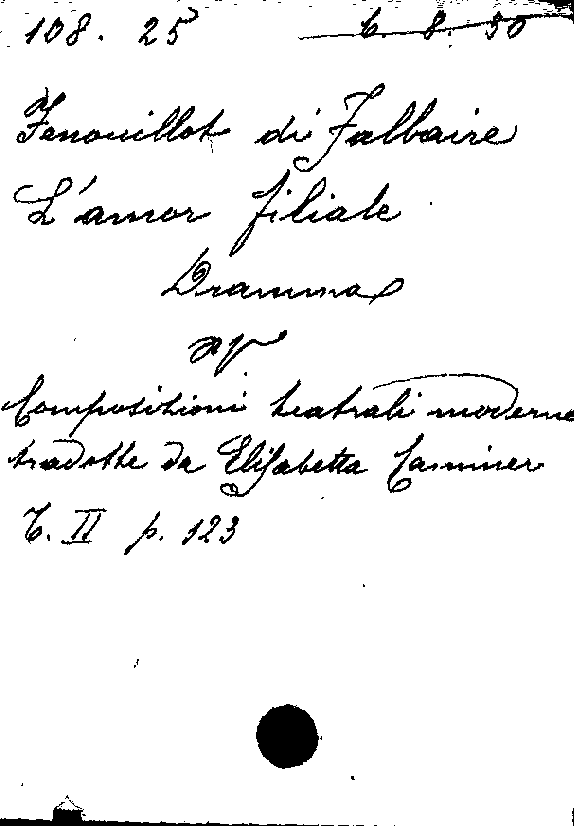 108. 25 C. 8. 50
Fenouillot di Falbaire
L'amor filiale
Dramma
Composizioni teatrali moderne
tradotte da Elisabetta Caminer
T. II p. 123